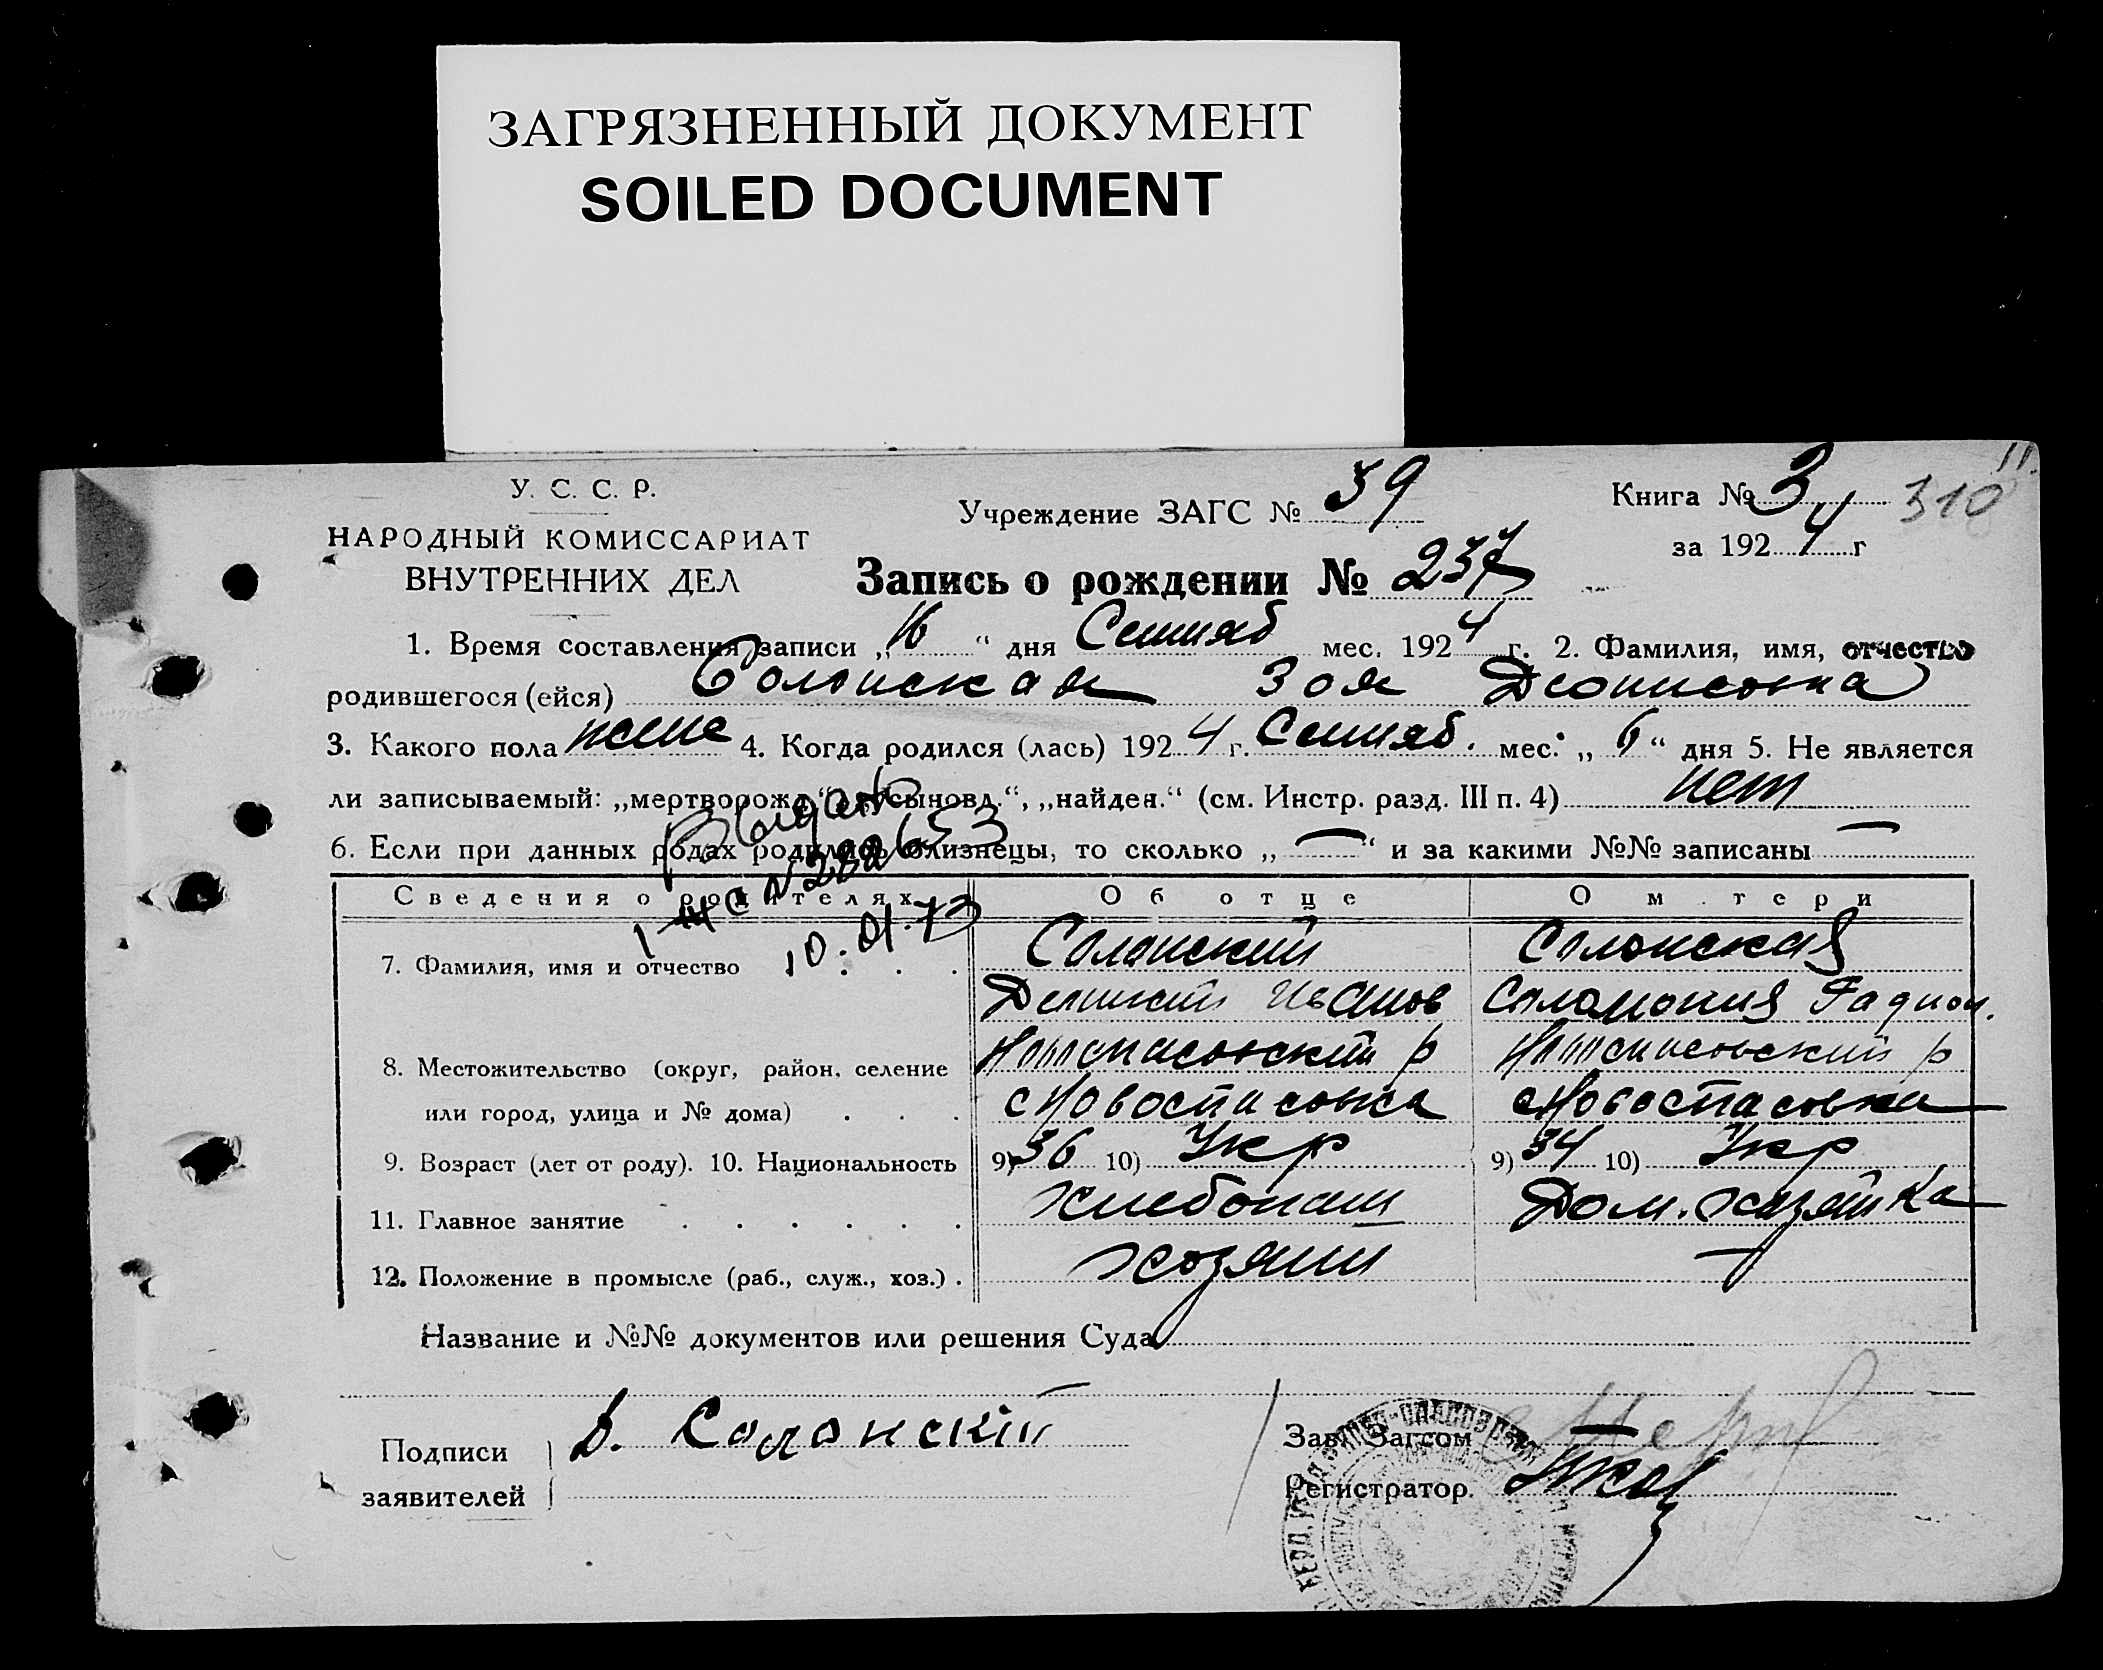 ЗАГРЯЗНЕННЫЙ ДОКУМЕНТ
SOILED DOCUMENT
У. С. С. Р.
НАРОДНЫЙ КОМИССАРИАТ
ВНУТРЕННИХ ДЕЛ
Учреждение ЗАГС № 39
Книга № 3
310
за 1924 г
Запись о рождении № 237
1. Время составления записи „16“ дня Сентяб мес. 1924 г. 2. Фамилия, имя, отчество
родившегося (ейся) Солонская Зоя
3. Какого пола женс 4. Когда родился (лась) 1924 г. Сентяб. мес. „6“ дня 5. Не является
ли записываемый: „мертворожд.“, „усыновл.“, „найден.“ (см. Инстр. разд. III п. 4) нет
6. Если при данных родах родились близнецы, то сколько „—“ и за какими №№ записаны —
Выдано
N 288653
10.01.73
Сведения о родителях Об отце О м тери
7. Фамилия, имя и отчество Солонский Солонская
Иванов Соломония Радион.
8. Местожительство (округ, район, селение Новоспасовский р Новоспасовский р
или город, улица и № дома) с Новоспасовка с Новоспасовка
9. Возраст (лет от роду). 10. Национальность 9) 36 10) Укр 9) 34 10) Укр
11. Главное занятие хлебопаш Дом. хозяйка
12. Положение в промысле (раб., служ., хоз.) хозяин —
Название и №№ документов или решения Суда
Подписи заявителей Д. Солонский
Зав. Загсом
Регистратор.